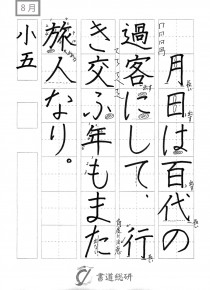 8月
月日は百代の
過客にして、行
き交ふ年もまた
旅人なり。
小五
書道総研